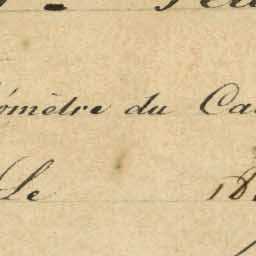 omètre du Ca
Le 18